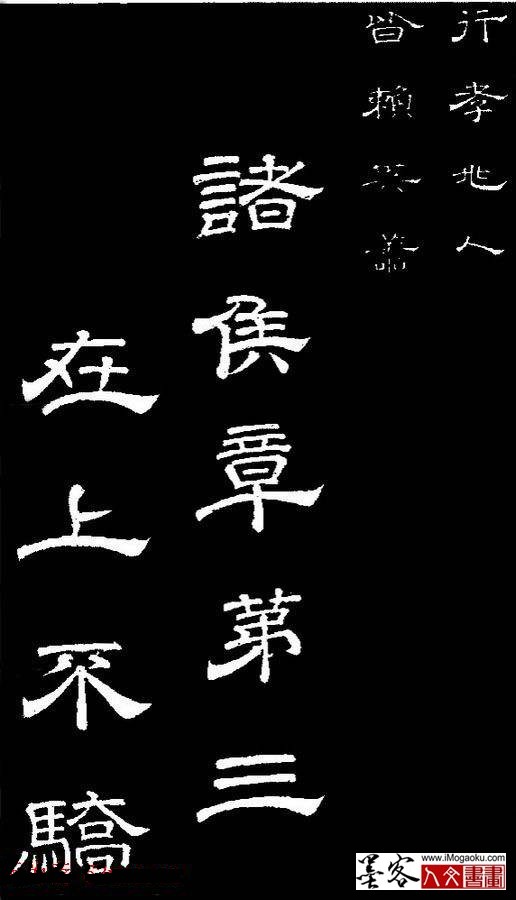 行孝兆人
皆賴其譱
諸侯章第三
在上不驕
墨客
www.iMogaoku.com
人文書畫